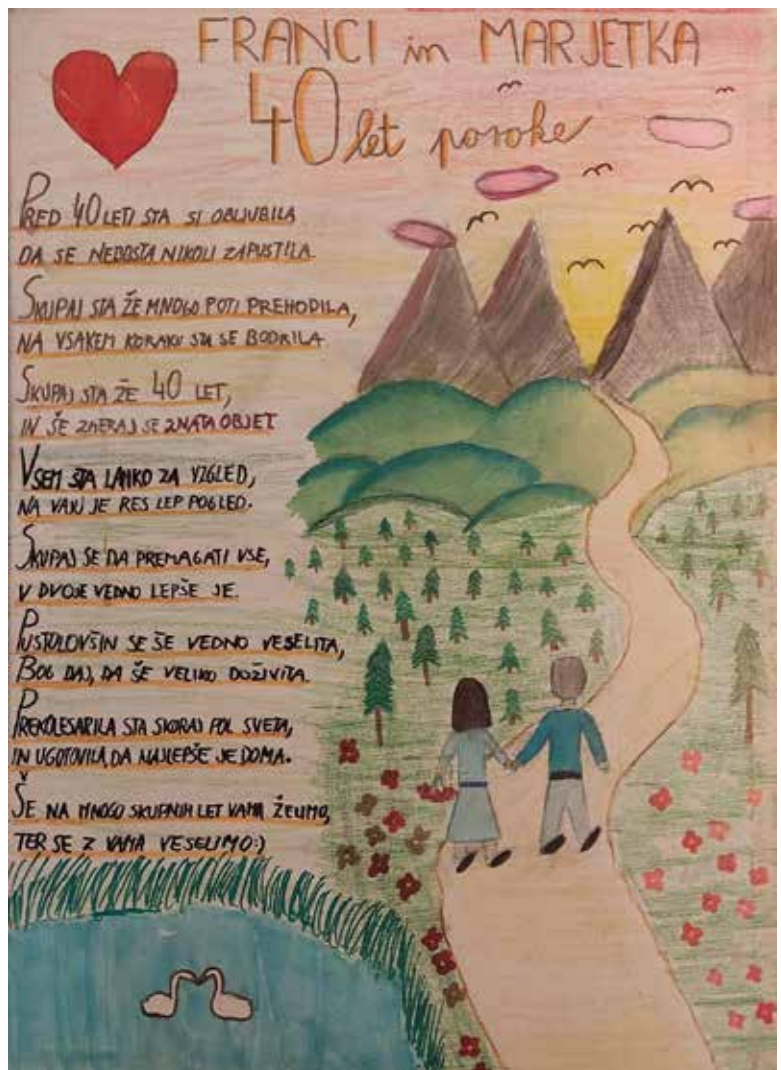 FRANCI in MARJETKA
40 let poroke
PRED 40 LETI STA SI OBLJUBILA
DA SE NEBOSTA NIKOLI ZAPUSTILA.
SKUPAJ STA ŽE MNOGO POTI PREHODILA,
NA VSAKEM KORAKU STA SE BODRILA
SKUPAJ STA ŽE 40 LET,
IN ŠE ZMERAJ SE ZNATA OBJET
VSEM STA LAHKO ZA VZGLED,
NA VAJU JE RES LEP POGLED.
SKUPAJ SE DA PREMAGATI VSE,
V DVOJE VEDNO LEPŠE JE.
PUSTOLOVŠIN SE ŠE VEDNO VESELITA,
BOG DAJ, DA ŠE VELIKO DOŽIVITA.
PREKOLESARILA STA SKORAJ POL SVETA,
IN UGOTOVILA, DA NAJLEPŠE JE DOMA.
ŠE NA MNOGO SKUPNIH LET VAMA ŽELIMO,
TER SE Z VAMA VESELIMO:)